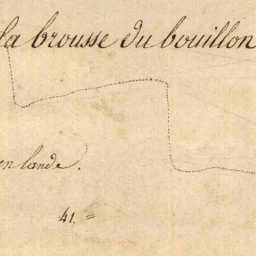 la brousse du bouillon
en lande.
41. =